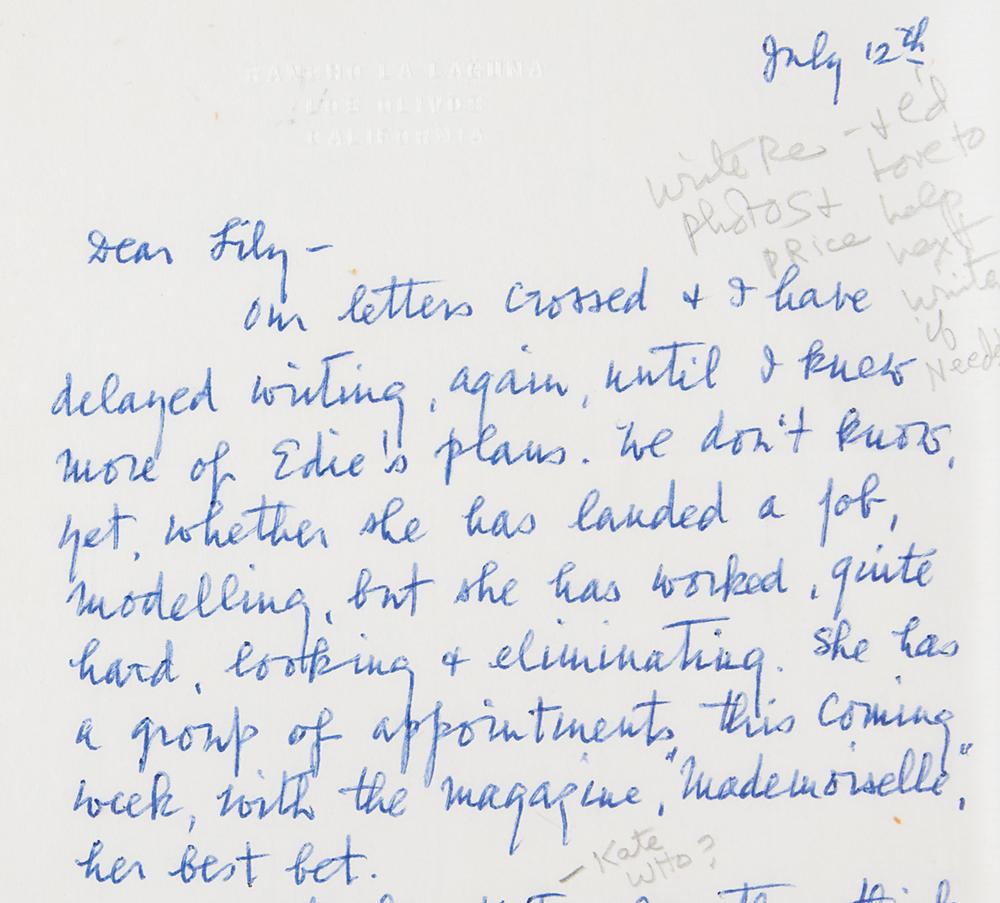 RANCHO LA LAGUNA
LOS OLIVOS
CALIFORNIA
July 12th
write Re - + I'd
photost love to
price help
next
write
if
Need
Dear Lily -
Our letters crossed & I have
delayed writing, again, until I knew
more of Edie's plans. We don't know,
yet, whether she has landed a job,
modelling, but she has worked, quite
hard, looking & eliminating. She has
a group of appointments this coming
week, with the magazine, "Mademoiselle",
her best bet.
- Kate
WHO?